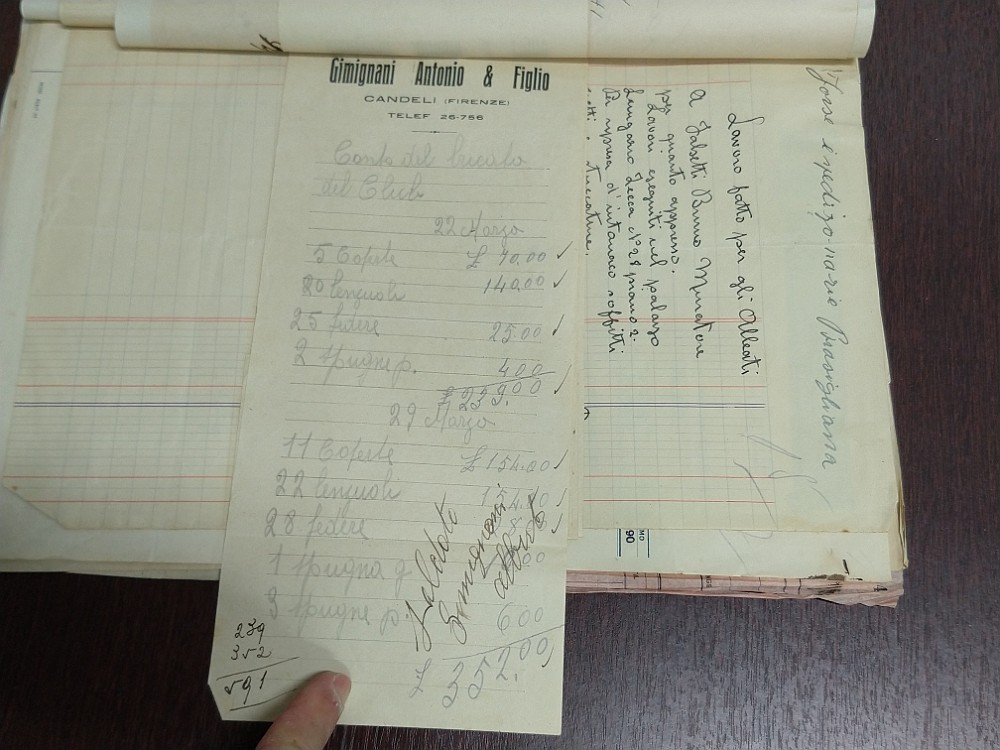 Gimignani Antonio & Figlio
CANDELI (FIRENZE)
TELEF 26-756
Conto del bucato
del Club
22 Marzo
5 Coperte £ 70.00
20 lenzuoli 140.00
25 federe 25.00
2 spugne p. 4.00
£ 239.00
29 Marzo
11 Coperte £ 154.00
22 lenzuoli 154.00
28 federe
1 spugna g
3 spugne p. 6.00
£ 352.00
Saldato
Gimignani
Alfredo
239
352
591
Lavoro fatto per gli Alleati
A Falsetti Bruno Muratore
per quanto appresso.
Lavori eseguiti nel palazzo
Lungarno Zecca N° 28 piano 2.
Per ripresa d'intonaco soffitti
stuccature.
Forse
MO
90